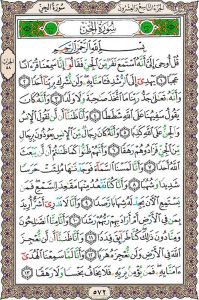 الجزء التاسع والعشرون سورة الجن
سُورَةُ الْجِنِّ
بِسْمِ اللَّهِ الرَّحْمَٰنِ الرَّحِيمِ
قُلْ أُوحِيَ إِلَيَّ أَنَّهُ اسْتَمَعَ نَفَرٌ مِّنَ الْجِنِّ فَقَالُوا إِنَّا سَمِعْنَا قُرْآنًا
عَجَبًا ١ يَهْدِي إِلَى الرُّشْدِ فَآمَنَّا بِهِ ۖ وَلَن نُّشْرِكَ بِرَبِّنَا أَحَدًا ٢
وَأَنَّهُ تَعَالَىٰ جَدُّ رَبِّنَا مَا اتَّخَذَ صَاحِبَةً وَلَا وَلَدًا ٣ وَأَنَّهُ
كَانَ يَقُولُ سَفِيهُنَا عَلَى اللَّهِ شَطَطًا ٤ وَأَنَّا ظَنَنَّا أَن لَّن تَقُولَ الْإِنسُ
وَالْجِنُّ عَلَى اللَّهِ كَذِبًا ٥ وَأَنَّهُ كَانَ رِجَالٌ مِّنَ الْإِنسِ يَعُوذُونَ بِرِجَالٍ
مِّنَ الْجِنِّ فَزَادُوهُمْ رَهَقًا ٦ وَأَنَّهُمْ ظَنُّوا كَمَا ظَنَنتُمْ أَن لَّن يَبْعَثَ اللَّهُ
أَحَدًا ٧ وَأَنَّا لَمَسْنَا السَّمَاءَ فَوَجَدْنَاهَا مُلِئَتْ حَرَسًا
شَدِيدًا وَشُهُبًا ٨ وَأَنَّا كُنَّا نَقْعُدُ مِنْهَا مَقَاعِدَ لِلسَّمْعِ ۖ فَمَن
يَسْتَمِعِ الْآنَ يَجِدْ لَهُ شِهَابًا رَّصَدًا ٩ وَأَنَّا لَا نَدْرِي أَشَرٌّ أُرِيدَ
بِمَن فِي الْأَرْضِ أَمْ أَرَادَ بِهِمْ رَبُّهُمْ رَشَدًا ١٠ وَأَنَّا مِنَّا الصَّالِحُونَ
وَمِنَّا دُونَ ذَٰلِكَ ۖ كُنَّا طَرَائِقَ قِدَدًا ١١ وَأَنَّا ظَنَنَّا أَن لَّن نُّعْجِزَ
اللَّهَ فِي الْأَرْضِ وَلَن نُّعْجِزَهُ هَرَبًا ١٢ وَأَنَّا لَمَّا سَمِعْنَا الْهُدَىٰ
آمَنَّا بِهِ ۖ فَمَن يُؤْمِن بِرَبِّهِ فَلَا يَخَافُ بَخْسًا وَلَا رَهَقًا ١٣
٥٧٢